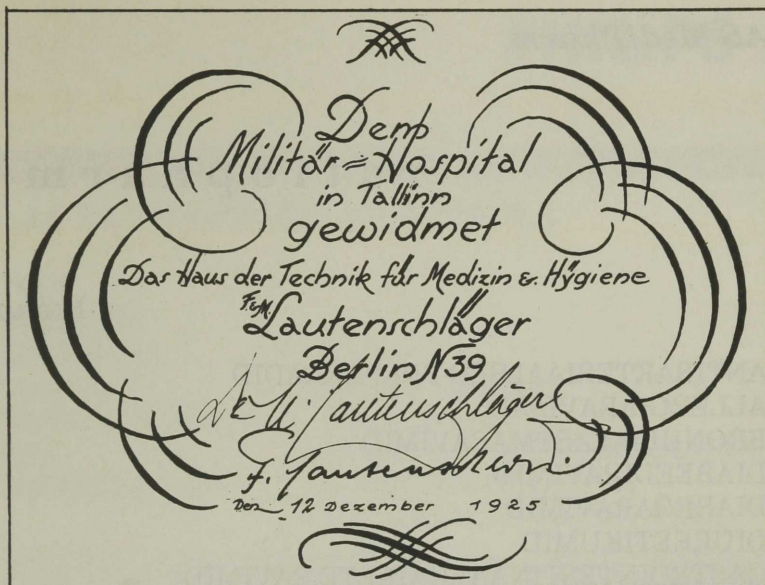 Dem
Militär=Hospital
in Tallinn
gewidmet
Das Haus der Technik für Medizin & Hygiene
F.&M. Lautenschläger
Berlin N39
Dr. M. Lautenschläger
F. Lautenschläger
Den 12 Dezember 1925